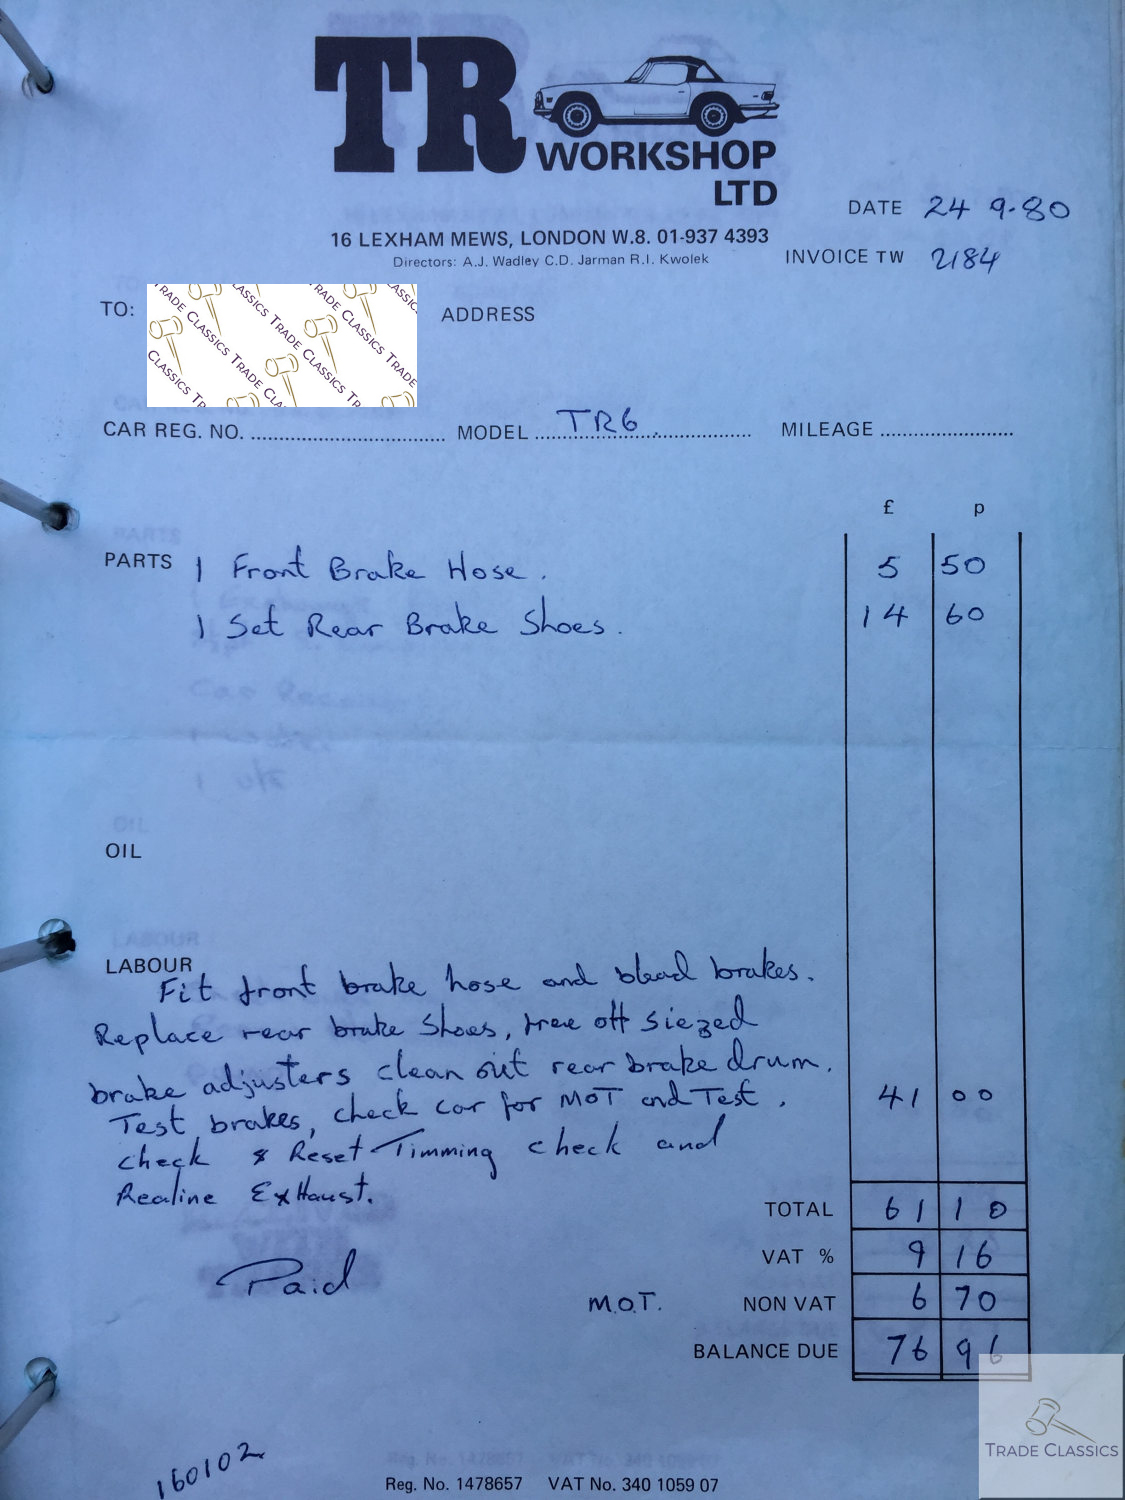 TR
WORKSHOP
LTD
16 LEXHAM MEWS, LONDON W.8. 01-937 4393
Directors: A.J. Wadley C.D. Jarman R.I. Kwolek
DATE 24 9.80
INVOICE TW 2184
TO:
ADDRESS
CAR REG. NO. MODEL TR6. MILEAGE
£ p
PARTS 1 Front Brake Hose. 5 50
1 Set Rear Brake Shoes. 14 60
OIL
LABOUR
Fit front brake hose and blead brakes.
Replace rear brake shoes, free off siezed
brake adjusters clean out rear brake drum.
Test brakes, check car for MOT and Test. 41 00
check & Reset Timming check and
Realine ExHaust.
TOTAL 61 10
VAT % 9 16
Paid
M.O.T. NON VAT 6 70
BALANCE DUE 76 96
TRADE CLASSICS
160102
Reg. No. 1478657 VAT No. 340 1059 07